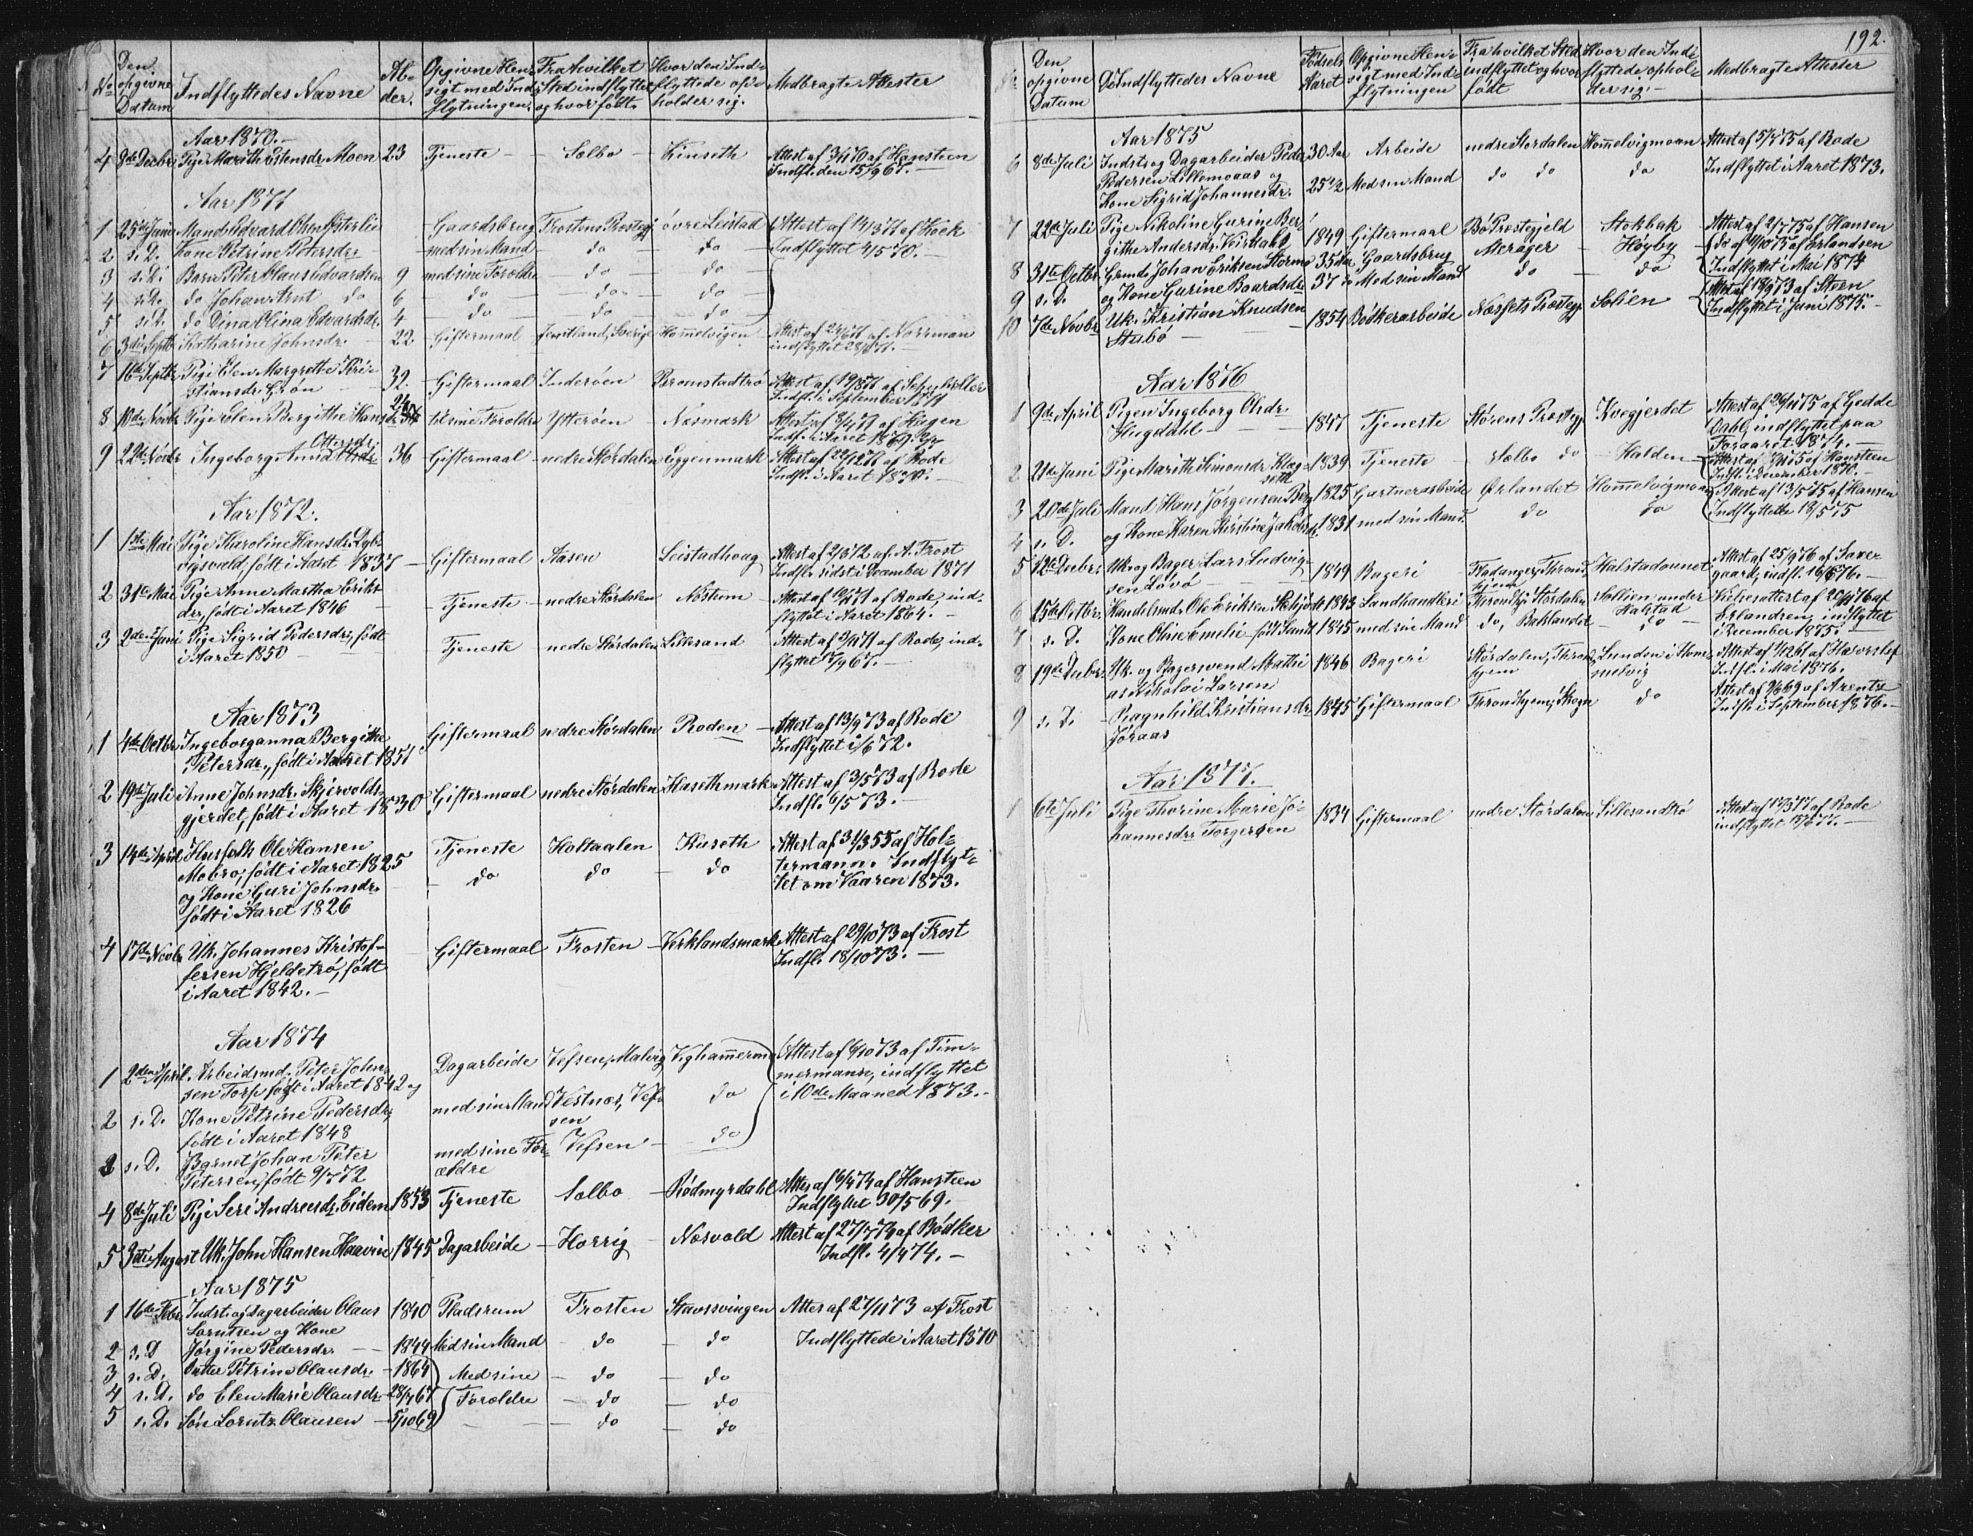 192.
No
Den opgivne Datum
Indflyttedes Navne
Alder.
Opgivne Hensigt med Indflytningen.
Fra hvilket Sted indflyttet og hvor født.
Hvor den Indflyttede opholder sig.
Medbragte Attester
Aar 1870.-
4 Pige Marith Estensdr. Moen 23 Tjeneste - Sælbo - Kinseth
Indfl. den 15/9 67.-
Aar 1871
1 25de Juni Gaardsbrug Frostens Prestegj. øvre Leistad
2 s. D. Kone Petrine Petersdr. med sin Mand do do - Indflyttet
3 s. D. Barn Peter Claus Edvardsen 9 med sine Forældre do do
4 s. D. do Johan Arnt do 6 do do do
5 s. D. do Dina Olina Edvardsdr. 4 do do do
6 3die Septbr. Katharine Johnsdr. 22 Giftermaal Jemtland, Sverige Hommelvigen
7 16de Septbr. Pige Elen Margrethe Kri-
stiansdr. Grøn 32. Giftermaal Inderøen
Indfl. i September 1871
8 Pige Elen Bergithe Ytterøen Næsmark
9 22de Ingeborg Anna Ottersdr. 36 Giftermaal - nedre Stördalen Eggenmark
Indfl. i Aaret 1870.-
Aar 1872.
1 1ste Mai Pige Karoline Hansdr.
født i Aaret 1837 - Giftermaal Aasen Leistadhaug Attest af 2/3 72 af A. Frost
Indfl. sidst i December 1871
2 31te Mai Pige Anne Martha Eriks-
dr., født i Aaret 1846 Tjeneste - nedre Stördalen af Rode, ind-
flyttet i Aaret 1864.-
3 2den Juni Pige Sigrid Pedersdr., født
i Aaret 1850 Tjeneste nedre Stördalen Lillesand af Rode, ind-
flyttet
Aar 1873
1 4de Octbr. Ingeborganna Bergitte
Petersdr., født i Aaret 1851 Giftermaal nedre Stördalen - Roden - Attest af 13/9 73 af Rode
Indflyttet i 1/6 72.
2 19de Juli Anne Johnsdr. Skjervolds-
gjerdet, født i Aaret 1830 Giftermaal nedre Stördalen Hasethmark Attest af 3/5 73 af Rode
Indfl. 6/5 73.-
3 14de April Husfolk Ole Hansen
Mobro, født i Aaret 1825
og Kone Guri Johnsdr.
født i Aaret 1826 Tjeneste Holtaalen Kuseth
do do do
Attest af 31/3 55 af Hol-
termann. Indflyt-
tet om Vaaren 1873.
4 17de Novbr. Uk. Johannes Kristof-
fersen Hjeldetrø, født
i Aaret 1842.- Giftermaal Frosten - Kirklandsmark Attest af 29/10 73 af Frost
Indfl. 18/10 73.-
Aar 1874
1 2den April Arbeidsmd. Peter John-
sen Torp født i Aaret 1842 og Dagarbeide Vefsen, Malvig Vighammermo Attest af 6/10 73 af Tim-
mermann, indflyttet
i 10de Maaned 1873.-
2 s. D. Kone Petrine Pedersdr.,
født i Aaret 1848 med sin Mand Vestnæs, Vef-
sen do
3 s. D. Barnet Johan Peter
Petersen, født 9/7 72 med sine For-
ældre Vefsen - do
4 8de Juli Pige Seri Andreasdr. Eidem 1853 Tjeneste Sælbo - Rødmyrdahl Attes af 6/4 74 af Hansteen
Indflyttet 30/5 69.-
5 3die August Uk. John Hansen Haavin 1845 Dagarbeide - Horrig - Næsvold Attest af 27/7 74 af Bødker
Indfl. 4/4 74.-
Aar 1875
1 16de Febr. Indst. og Dagarbeider Claus
Lorntsen og Kone 1840 Pladsrum Frosten Stavssvingen Attes af 27/11 73 af Frost
2 s. D Jørgine Pedersdr. 1844 Med sin Mand - do do Indflyttede i Aaret 1870
3 s. D. Datter Petrine Clausdr. - 1864 Med sine - do - do
4 s. D. do Elen Marie Clausdr. 28/4 67 Forældre - do do
5 s. D. Søn Lorntz Clausen - 5/10 69 do do
Den opgivne Datum
De Indflyttedes Navne
Fødsels Aaret
Opgivne Hensigt med Indflytningen
Fra hvilket Sted indflyttet og hvor født
Hvor den Indflyttede opholder sig.-
Medbragte Attester
Aar 1875
6 8de Juli Indst. og Dagarbeider Peder
Pedersen Lillemoaas og
Kone Sigrid Johannesdr. 30 Aar Arbeide nedre Stordalen Hommelvigmoan Attest af 5/7 75 af Rode
25 1/2 Med sin Mand do do do Indflyttet i Aaret 1873.
7 22de Juli Pige Nikoline Gurine Ber-
githe Andersdr. 1849 Giftermaal Bø Præstegjeld Stokbak Attest af 2/7 75 af Hansen
8 31te Octbr. Grmd. Johan Eriksen Stormo 35 Aar Gaardsbrug Merager Høyby do af 4/10 75 af Erlandsen
9 s. D. og Kone Gurine Baardsdr. 37 Med sin Mand do do Indflyttet i Mai 1874
10 7de Novbr. Uk. Kristian Knudsen
Stubø - 1854 Bødkerarbeide Næssets Præstegj. Sølien Attest af 18/9 73 af Steen
Indflyttet i Juni 1875.-
Aar 1876
1 9de April Pigen Ingeborg Olsdr.
Hugdahl 1847 Tjeneste Störens Præstegj. Kvegjerdet Attest af 26/11 75 af Gjedde
indflyttet paa
Foraaret 1874.-
2 21de Juni Pige Marith Simonsdr. Klag-
seth 1839 Tjeneste - Sælbo do - Halden - af Hansteen
Indfl. i December 1870.-
3 20de Juli Mand Hans Jørgensen Berg 1825 Gartnerarbeide Ørlandet Hommelvigmoan Attest af 13/5 75 af Hansen
4 s. D. og Kone Karen Kirstine 1831 med sin Mand do do Indflyttede 18/5 75
5 12te Uk. og Bager Lars Ludvig-
sen Løvø 1849 Bageri Fladanger, Thrond-
hjem Halstadounet Attest af 25/9 76 af Saxe-
gaard, indfl. 16/6 76.-
6 15de Octbr. Handelsmd. Ole Eriksen 1843 Landhandleri Throndhj. Stördalen Søllien under
Halstad Kirkeattest af 20/11 76 af
7 s. D. Kone Olise Emelie født 1845 med sin Mand do, Baklandet do Erlandsen, indflyttet
i December 1875.-
8 19de Uk. og Bagersvend Mathi-
as Nikolai Larsen 1846 Bageri Stördalen, Thrond-
hjem Lunden i Hom-
melvig
Indfl. i Mai 1876.
9 s. D. Ragnhild Kristiansdr.
Jøraas 1845 Giftermaal Throndhjem, do Attest af 9/6 69 af Arentz
Indfl. i September 1876.-
Aar 1877.
1 6te Juli Pige Thorine Marie Jo-
hannesdr. Torgersen 1834 Giftermaal nedre Stördalen Lillesandtrø Attest af 17/3 17 af Rode
indflyttet